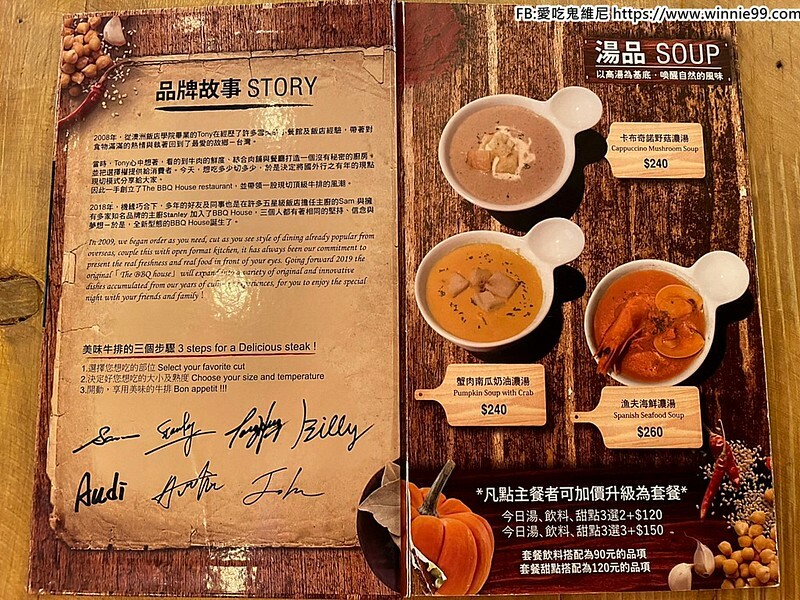 FB:愛吃鬼維尼 https://www.winnie99.com
品牌故事 STORY
2008年，從澳洲飯店學院畢業的Tony在經歷了許多 小餐館及飯店經驗，帶著對
食物滿滿的熱情與執著回到了最愛的故鄉－台灣。
當時，Tony心中想著，看的到牛肉的鮮度，綜合肉舖與餐廳打造一個沒有秘密的廚房。
並把選擇權提供給消費者。今天，想吃多少切多少，於是決定將國外行之有年的現點
現切模式分享給大家。
因此一手創立了The BBQ House restaurant，並帶領一股現切頂級牛排的風潮。
2018年，機緣巧合下，多年的好友及同事也是在許多五星級飯店擔任主廚的Sam 與擁
有多家知名品牌的主廚Stanley 加入了BBQ House，三個人都有著相同的堅持、信念與
夢想－於是，全新型態的BBQ House誕生了。
In 2009, we began order as you need, cut as you see style of dining already popular from
overseas, couple this with open format kitchen, it has always been our commitment to
present the real freshness and real food in front of your eyes. Going forward 2019 the
original「The BBQ house」will expand into a variety of original and innovative
dishes accumulated from our years of culinary experiences, for you to enjoy the special
night with your friends and family !
美味牛排的三個步驟 3 steps for a Delicious steak !
1.選擇您想吃的部位 Select your favorite cut
2.決定好您想吃的大小及熟度 Choose your size and temperature
3.開動，享用美味的牛排 Bon appetit !!!
Sam Stanley Billy
Audi Austin John
湯品 SOUP
以高湯為基底，喚醒自然的風味
卡布奇諾野菇濃湯
Cappuccino Mushroom Soup
$240
蟹肉南瓜奶油濃湯
Pumpkin Soup with Crab
$240
漁夫海鮮濃湯
Spanish Seafood Soup
$260
*凡點主餐者可加價升級為套餐*
今日湯、飲料、甜點3選2+$120
今日湯、飲料、甜點3選3+$150
套餐飲料搭配為90元的品項
套餐甜點搭配為120元的品項